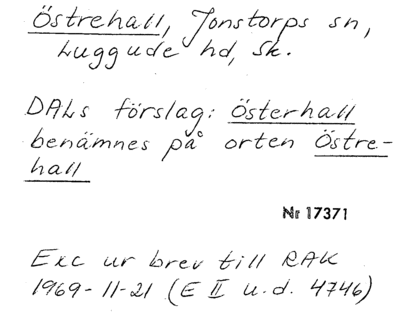 Östrehall, Jonstorps sn,
Luggude hd, Sk.
DALs förslag: Österhall
benämnes på orten Östre-
hall
Nr 17371
Exc ur brev till RAK
1969-11-21 (E II u.d. 4746)